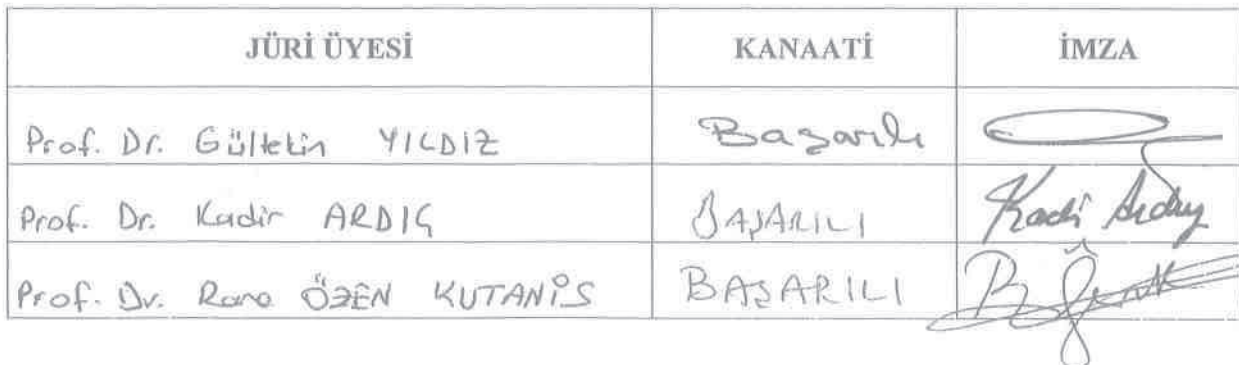 JÜRİ ÜYESİ KANAATİ İMZA
Prof. Dr. Gültekin YILDIZ Başarılı
Prof. Dr. Kadir ARDIÇ BAŞARILI
Prof. Dr. Rana ÖZEN KUTANİS BAŞARILI